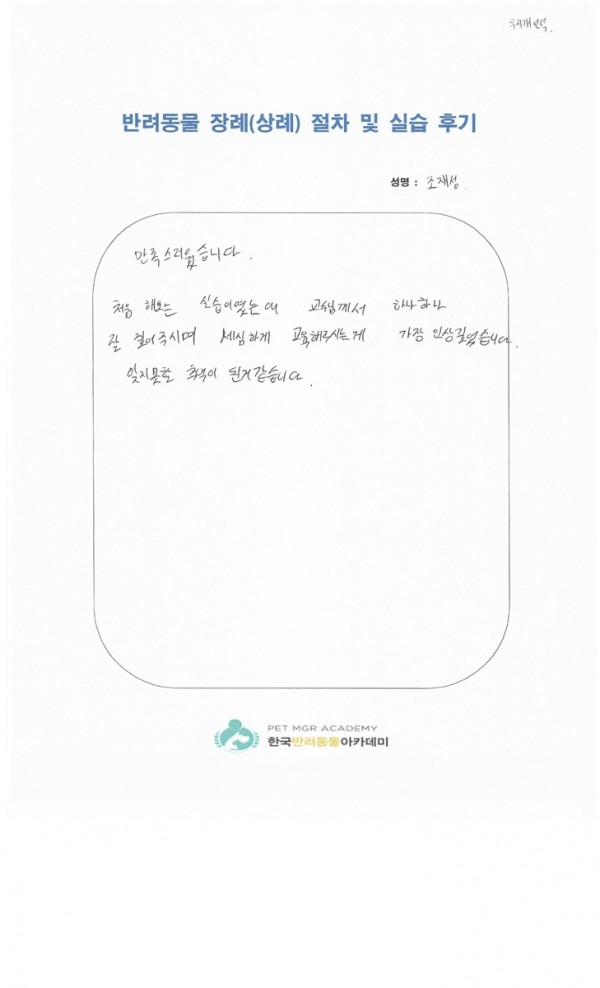 반려동물 장례(상례) 절차 및 실습 후기
성명 : 조재성
만족스러웠습니다.
처음 해보는 실습이였는데 교수님께서 하나하나
잘 짚어주시며 세심하게 교육해주시는게 가장 인상깊었습니다.
잊지못할 추억이 된거같습니다.
PET MGR ACADEMY
한국반려동물아카데미